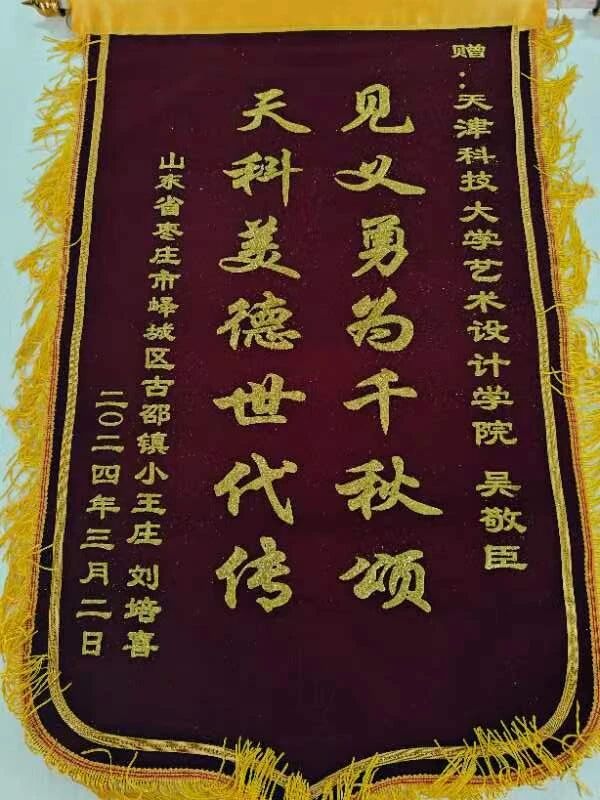 赠：天津科技大学艺术设计学院 吴敬臣
见义勇为千秋颂
天科美德世代传
山东省枣庄市峄城区古邵镇小王庄 刘培喜
二〇二四年三月二日